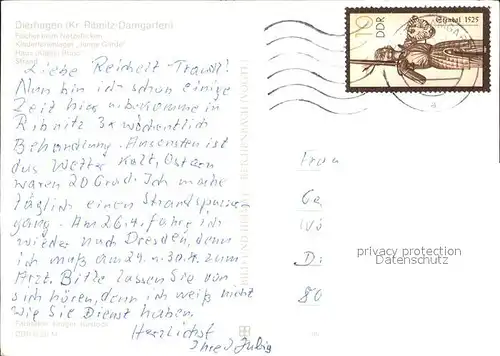 Dierhagen (Kr. Ribnitz-Damgarten)
Fischer beim Netzeflicken
Kinderferienlager "Junge Garde"
Haus
Strand
Liebe Traudl!
Nun bin ich schon einige
Zeit hier u. bekomme in
Ribnitz 3x wöchentlich
Behandlung. Ansonsten ist
das Wetter kalt, Ostern
waren 20 Grad. Ich mache
täglich einen Strandspazier
gang. Am 26.4. fahre ich
wieder nach Dresden, denn
ich muß am 29. u. 30.4. zum
Arzt. Bitte lassen Sie von
sich hören, denn ich weiß nicht
wie Sie Dienst haben.
Herzlichst
Ihre
10
DDR
Stendal 1525
Frau
Ge
Wi
D:
80
privacy protection
Datenschutz
BILD UND HEIMAT REICHENBACH (VOGTL)